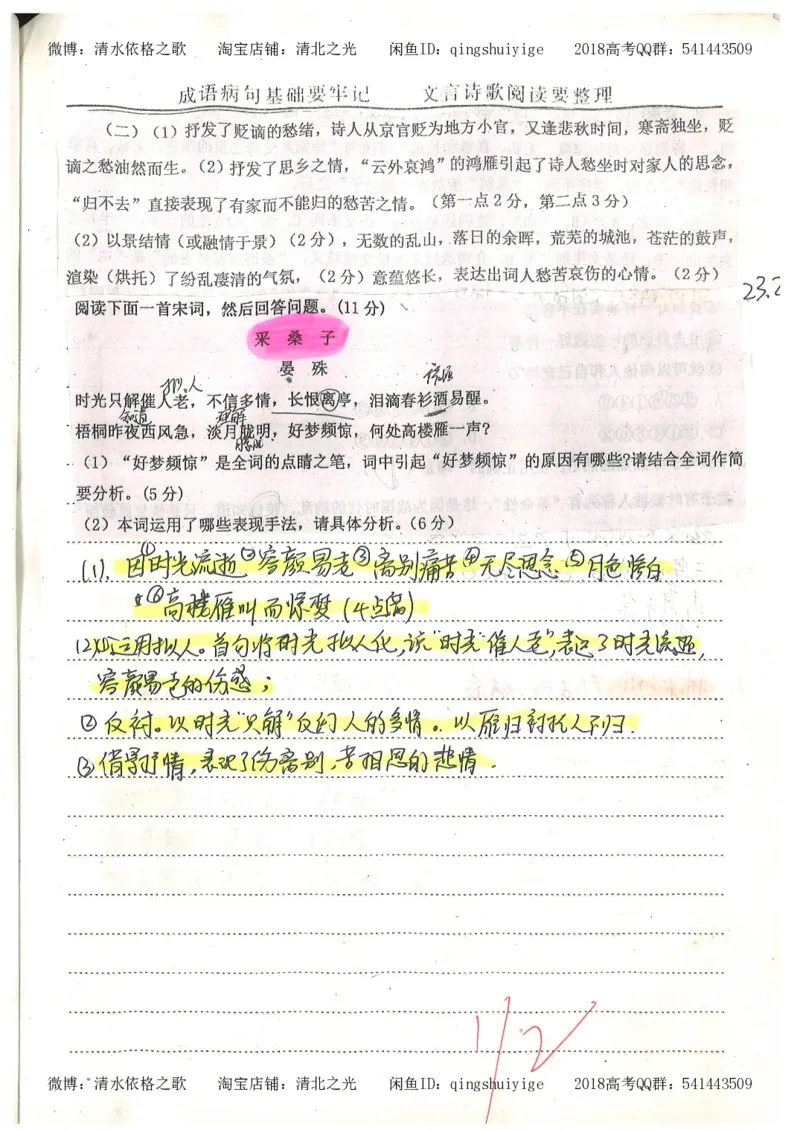 微博：清水依格之歌 淘宝店铺：清北之光 闲鱼ID：qingshuiyige 2018高考QQ群：541443509
成语病句基础要牢记 文言诗歌阅读要整理
（二）（1）抒发了贬谪的愁绪，诗人从京官贬为地方小官，又逢悲秋时间，寒斋独坐，贬
谪之愁油然而生。（2）抒发了思乡之情，“云外哀鸿”的鸿雁引起了诗人愁坐时对家人的思念，
“归不去”直接表现了有家而不能归的愁苦之情。（第一点2分，第二点3分）
（2）以景结情（或融情于景）（2分），无数的乱山，落日的余晖，荒芜的城池，苍茫的鼓声，
渲染（烘托）了纷乱凄清的气氛，（2分）意蕴悠长，表达出词人愁苦哀伤的心情。（2分）
23.2
阅读下面一首宋词，然后回答问题。(11分)
采桑子
晏殊
拟人
时光只解催人老，不信多情，长恨离亭，泪滴春衫酒易醒。
知道 理解
梧桐昨夜西风急，淡月胧明，好梦频惊，何处高楼雁一声?
（1）“好梦频惊”是全词的点睛之笔，词中引起“好梦频惊”的原因有哪些?请结合全词作简
要分析。(5分)
（2）本词运用了哪些表现手法，请具体分析。(6分)
(1). 因①时光流逝②容颜易老③离别痛苦④无尽思念⑤月色惨白
⑥高楼雁叫而惊梦 (4点满)
(2)①运用拟人。首句将时光拟人化，说“时光”催人老”，表达了时光流逝，
容颜易老的伤感；
② 反衬。以时光“只解”反衬人的多情。以雁归衬托人不归.
③ 借景抒情，表现了伤离别，苦相思的悲情.
1/2
微博：清水依格之歌 淘宝店铺：清北之光 闲鱼ID：qingshuiyige 2018高考QQ群：541443509